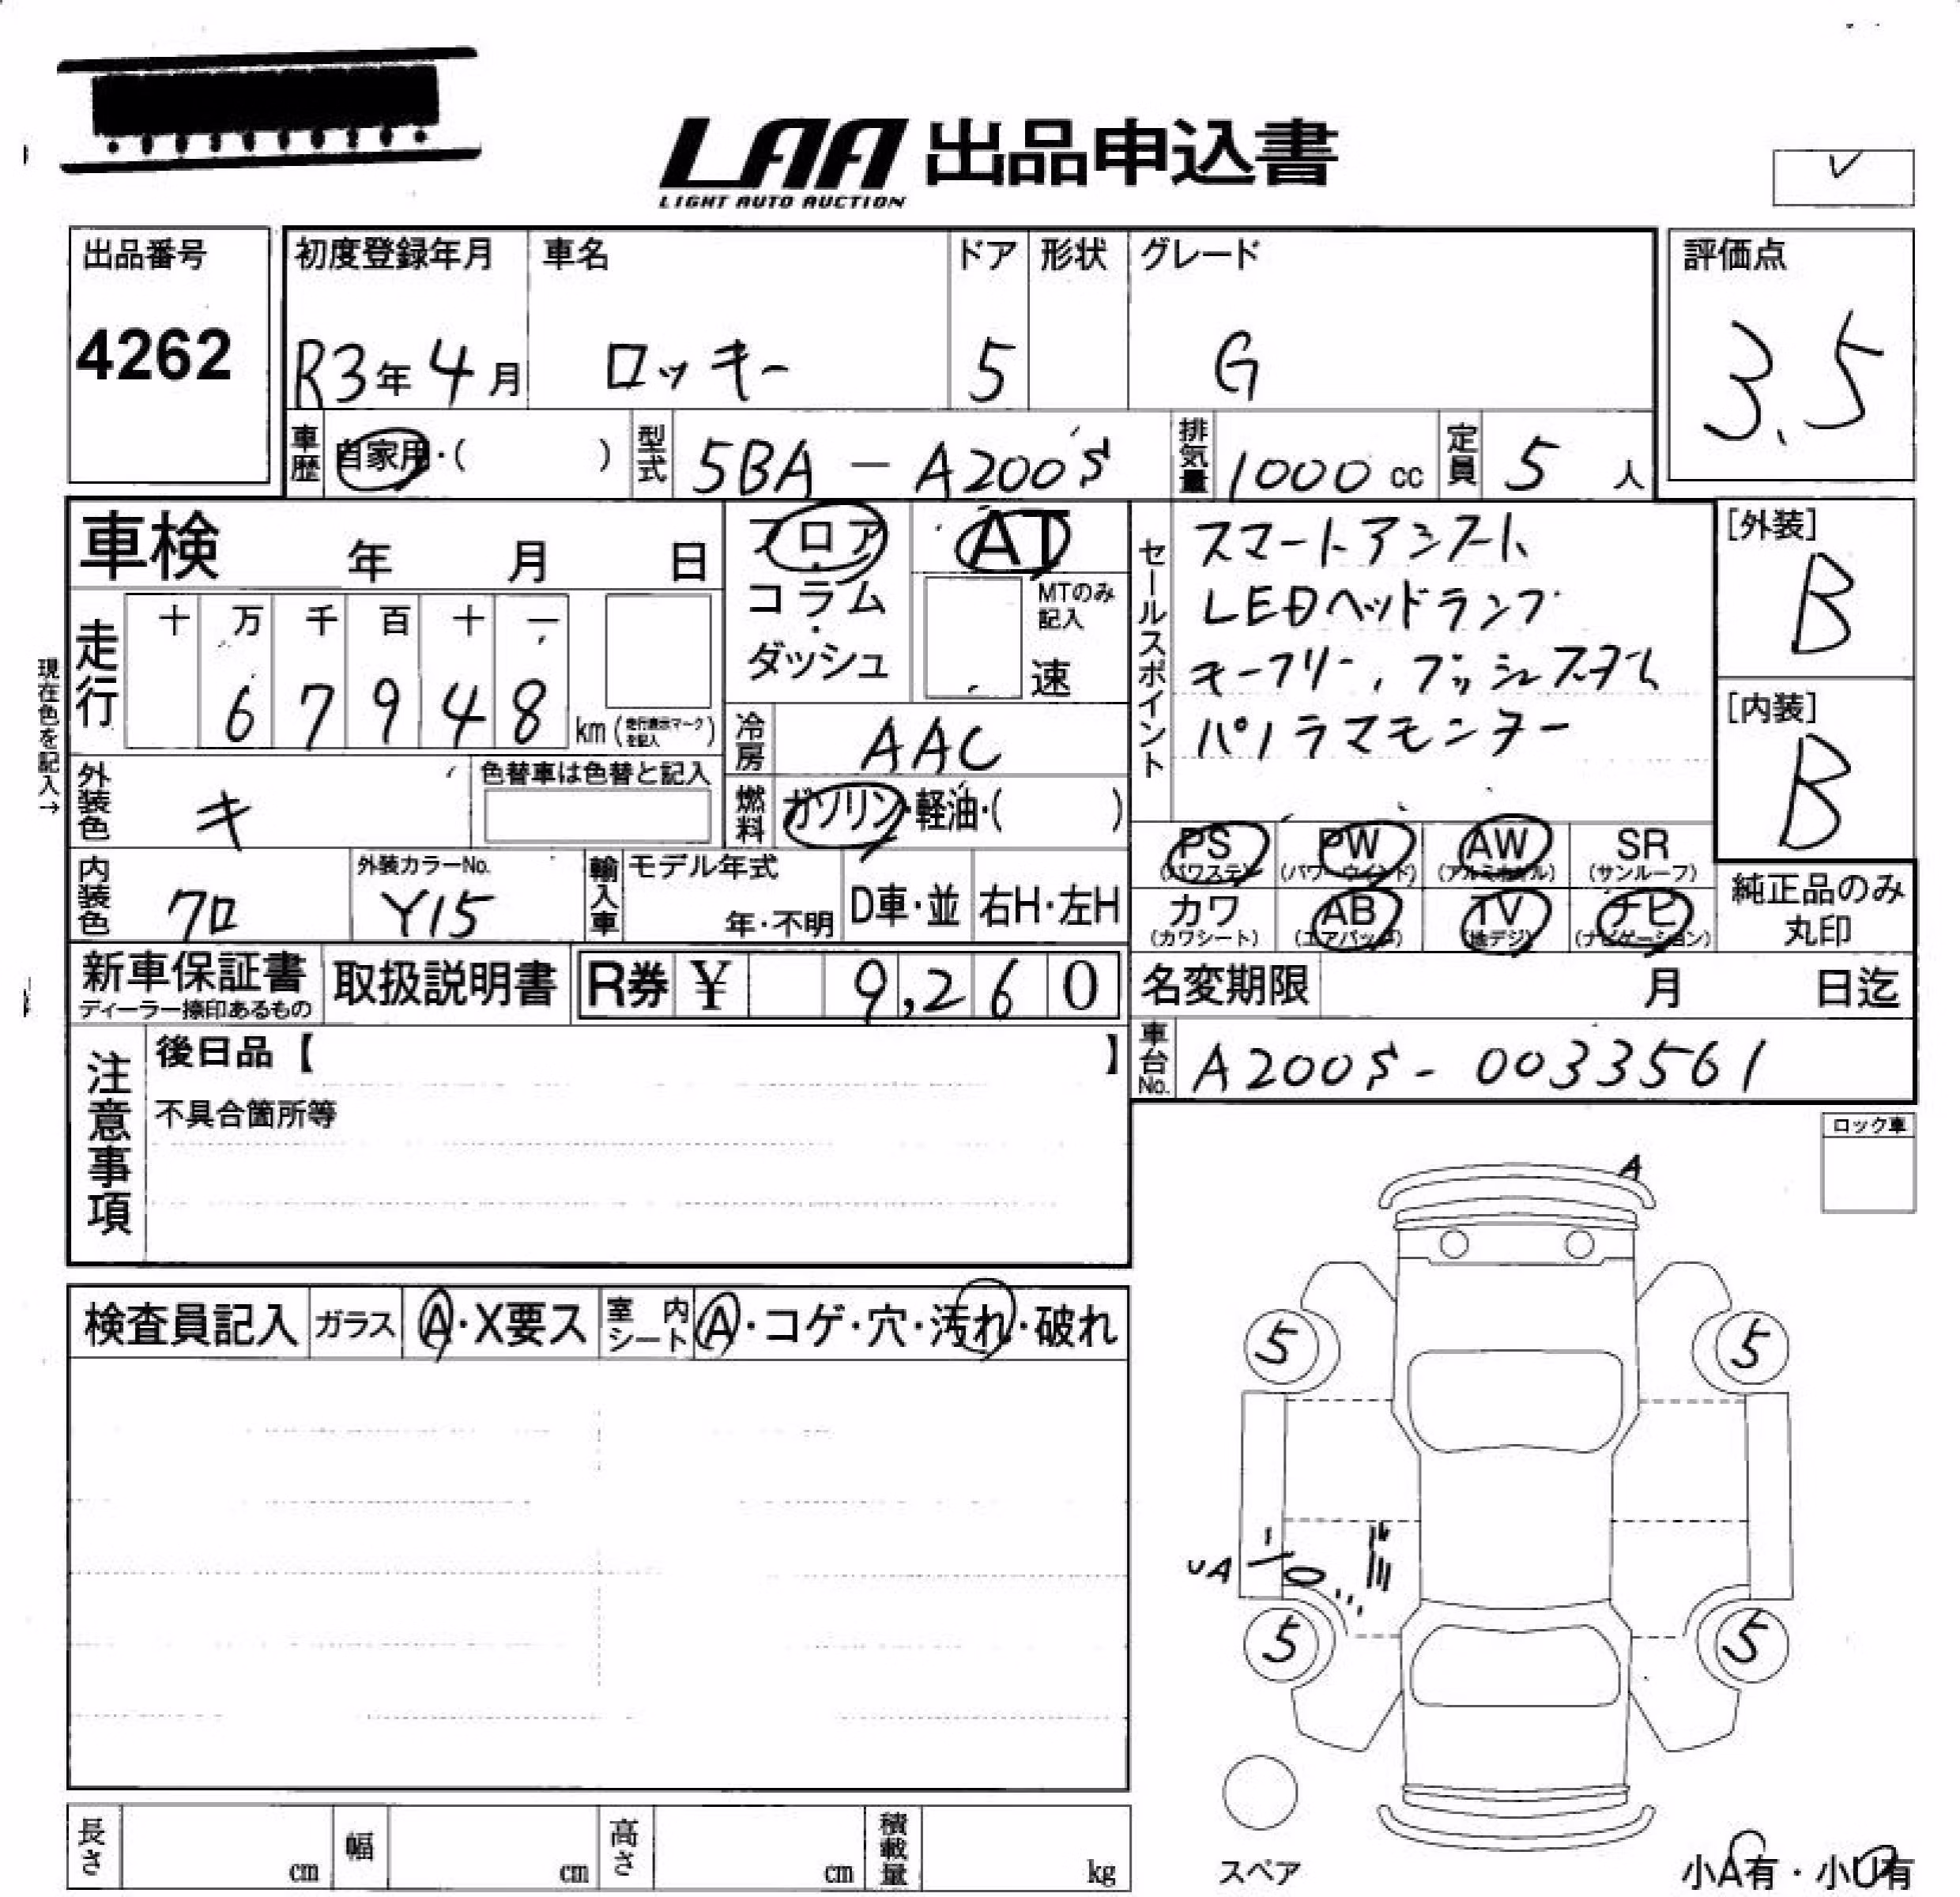 LAA 出品申込書
LIGHT AUTO AUCTION
出品番号
4262
初度登録年月
R3年4月
車名
ロッキー
ドア
5
形状
グレード
G
評価点
3.5
車歴
自家用・( )
型式
5BA-A200S
排気量
1000 cc
定員
5 人
車検 年 月 日
フロア・
コラム・
ダッシュ
AT
MTのみ
記入
速
セールスポイント
スマートアシスト
LEDヘッドランプ
キーフリー、プッシュスタート
パノラマモニター
[外装]
B
[内装]
B
現在色を記入→
走行
十 万 千 百 十 一
6 7 9 4 8
km (走行表示マークを記入)
冷房
AAC
外装色
キ
色替車は色替と記入
燃料
ガソリン・軽油・( )
PS
(パワステ)
PW
(パワーウインド)
AW
(アルミホイル)
SR
(サンルーフ)
カワ
(カワシート)
AB
(エアバッグ)
TV
(地デジ)
ナビ
(ナビゲーション)
純正品のみ
丸印
内装色
クロ
外装カラーNo.
Y15
輸入車
モデル年式
年・不明
D車・並
右H・左H
新車保証書
ディーラー捺印あるもの
取扱説明書
R券 ¥ 9,260
名変期限 月 日迄
車台No.
A200S-0033561
注意事項
後日品【 】
不具合箇所等
ロック車
A
検査員記入
ガラス
A・X要ス
室内シート
A・コゲ・穴・汚れ・破れ
5
5
UA
5
5
スペア
小A有・小U有
長さ cm
幅 cm
高さ cm
積載量 kg